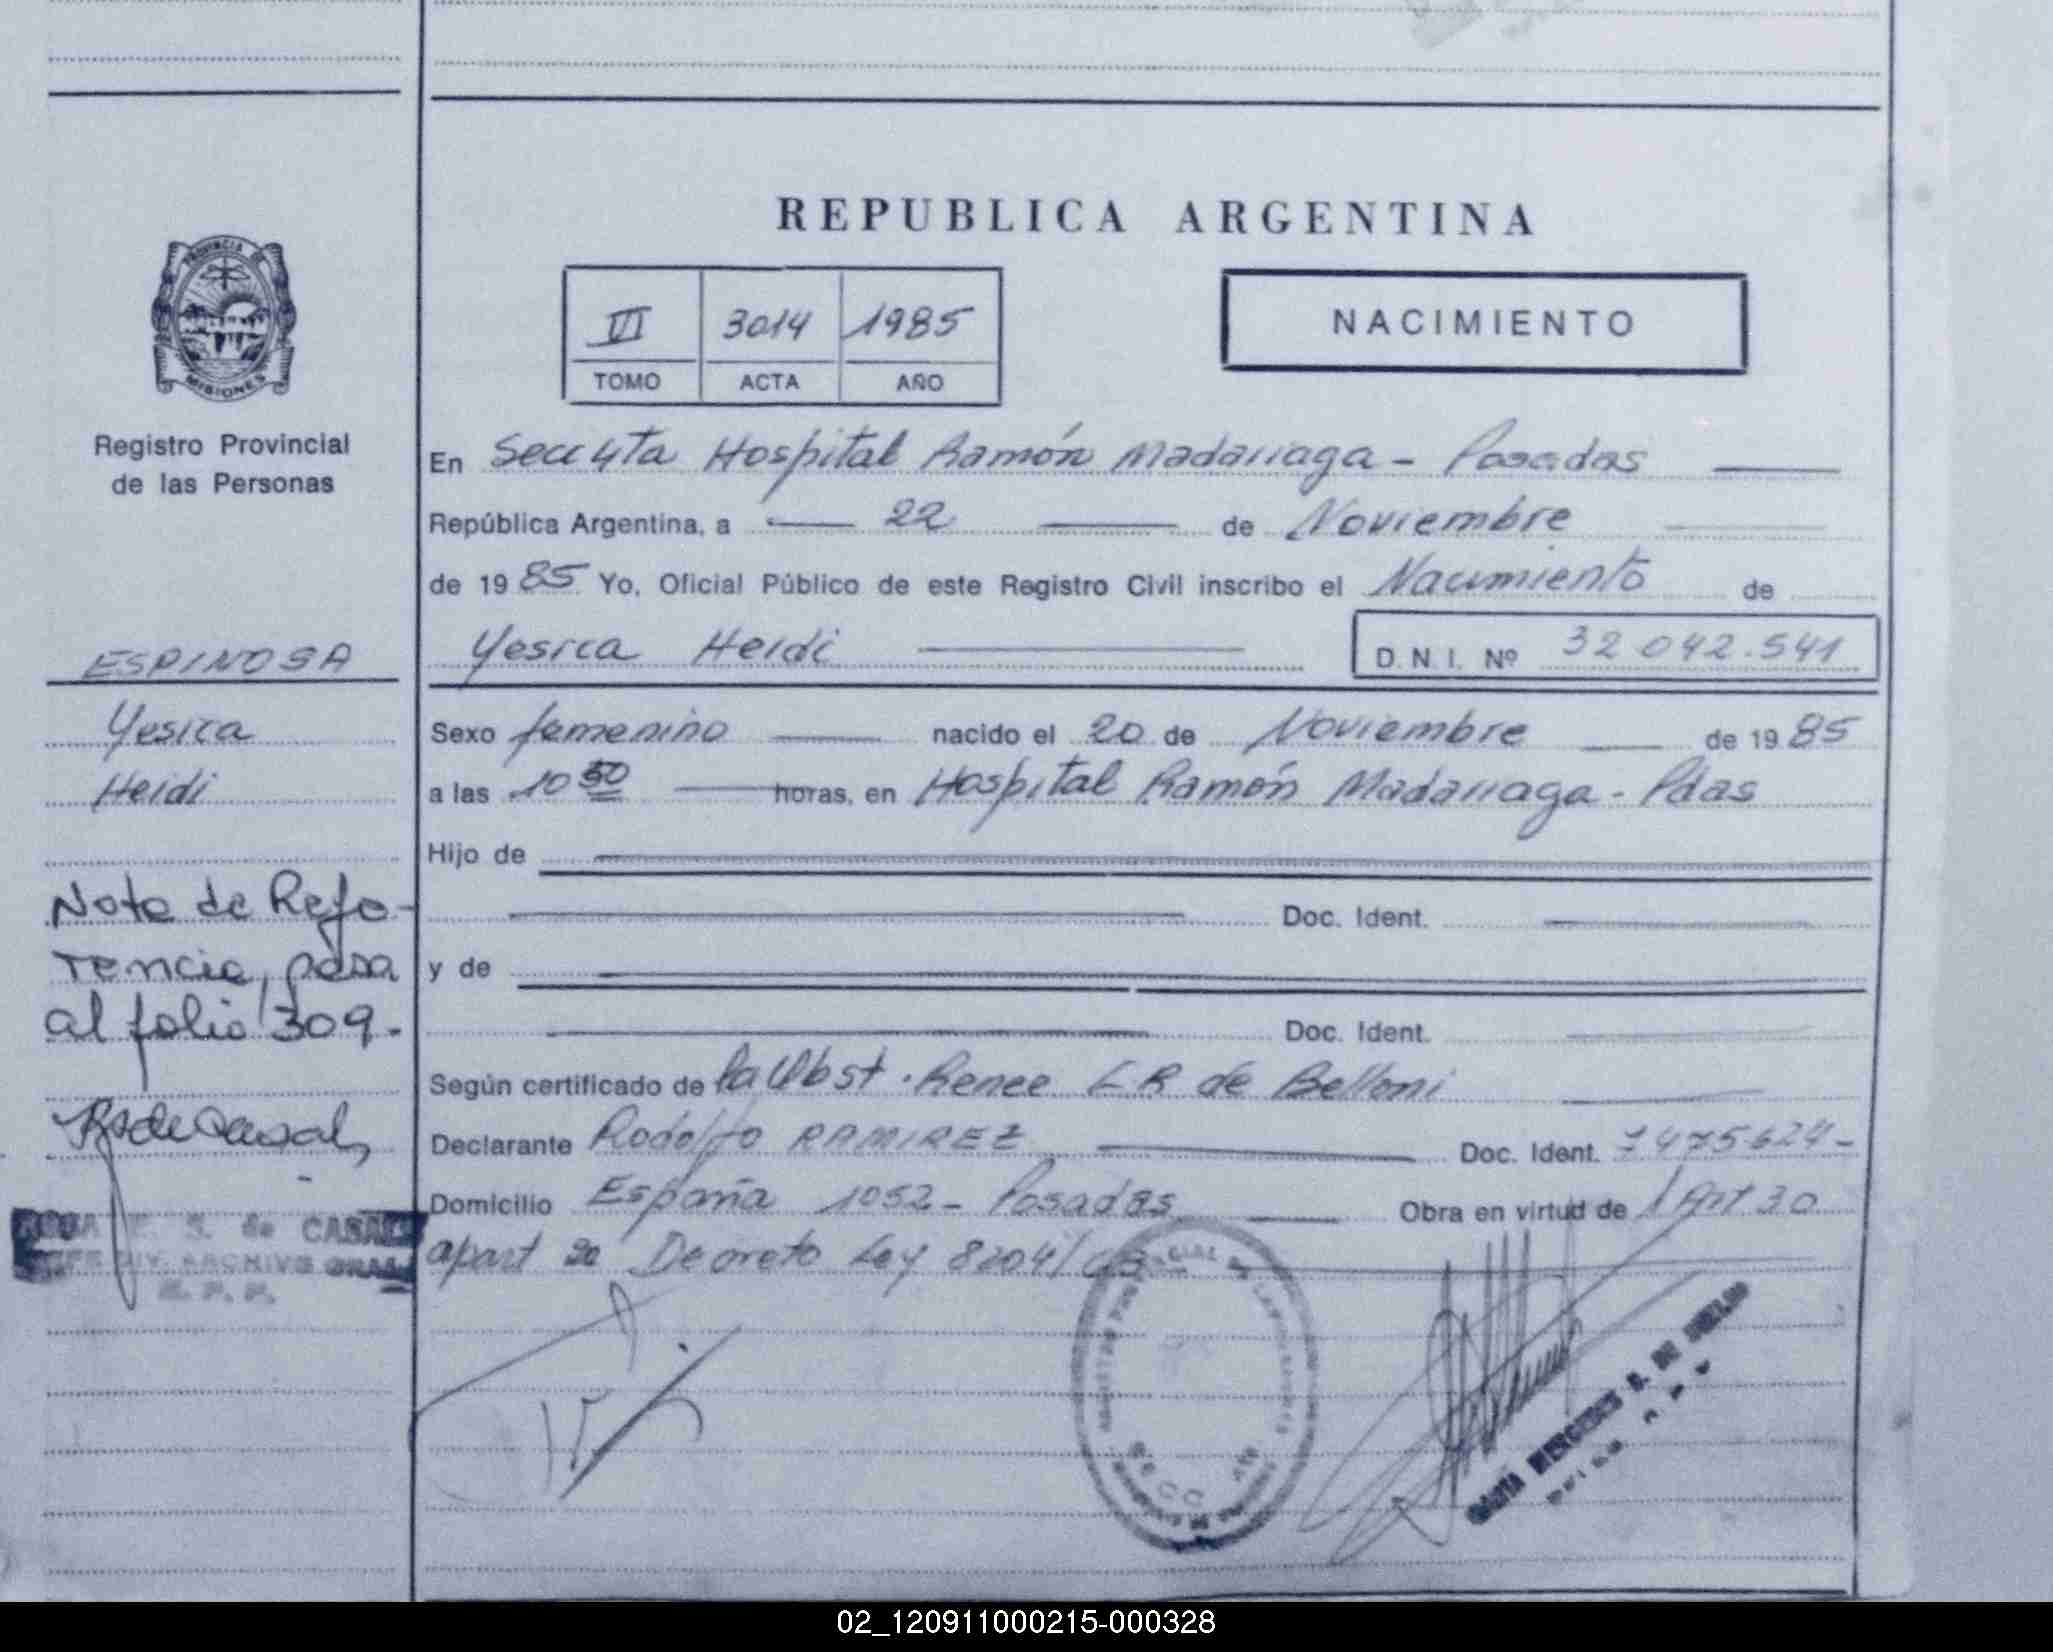 REPUBLICA ARGENTINA
PROVINCIA DE
MISIONES
Registro Provincial
de las Personas
VI 3014 1985
TOMO ACTA AÑO
NACIMIENTO
En Secc 4ta Hospital Ramón Madariaga - Posadas
República Argentina, a 22 de Noviembre
de 1985 Yo, Oficial Público de este Registro Civil inscribo el Nacimiento de
Yesica Heidi D.N.I. Nº 32 042.541
Sexo femenino nacido el 20 de Noviembre de 1985
a las 10 50 horas, en Hospital Ramón Madariaga - Pdas
Hijo de
Doc. Ident.
y de
Doc. Ident.
Según certificado de la Obst. Renee E R de Belloni
Declarante Rodolfo RAMIREZ Doc. Ident. 7475624-
Domicilio España 1052 - Posadas Obra en virtud de l Art 30
apart 2o Decreto Ley 8204/63
ESPINOSA
Yesica
Heidi
Nota de Refe-
rencia, pasa
al folio 309.-
E. S. de CASAL
JEFE DIV. ARCHIVO GRAL.
R. P. P.
MERCEDES
02_120911000215-000328